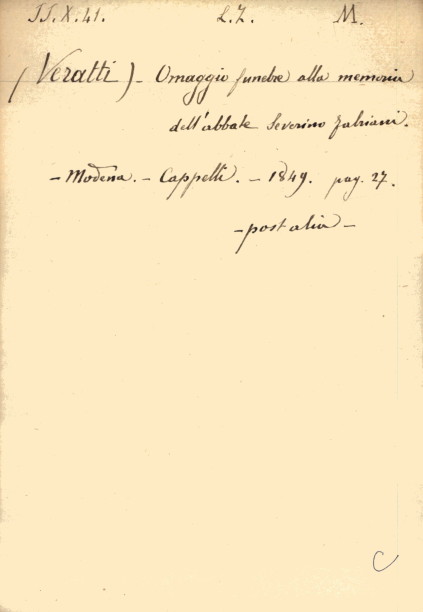 TT.X.41. L.Z. M.
(Veratti) - Omaggio funebre alla memoria
dell'abbate Severino Fabriani.
- Modena. - Cappelli. - 1849. pag. 27.
- post alia -
C